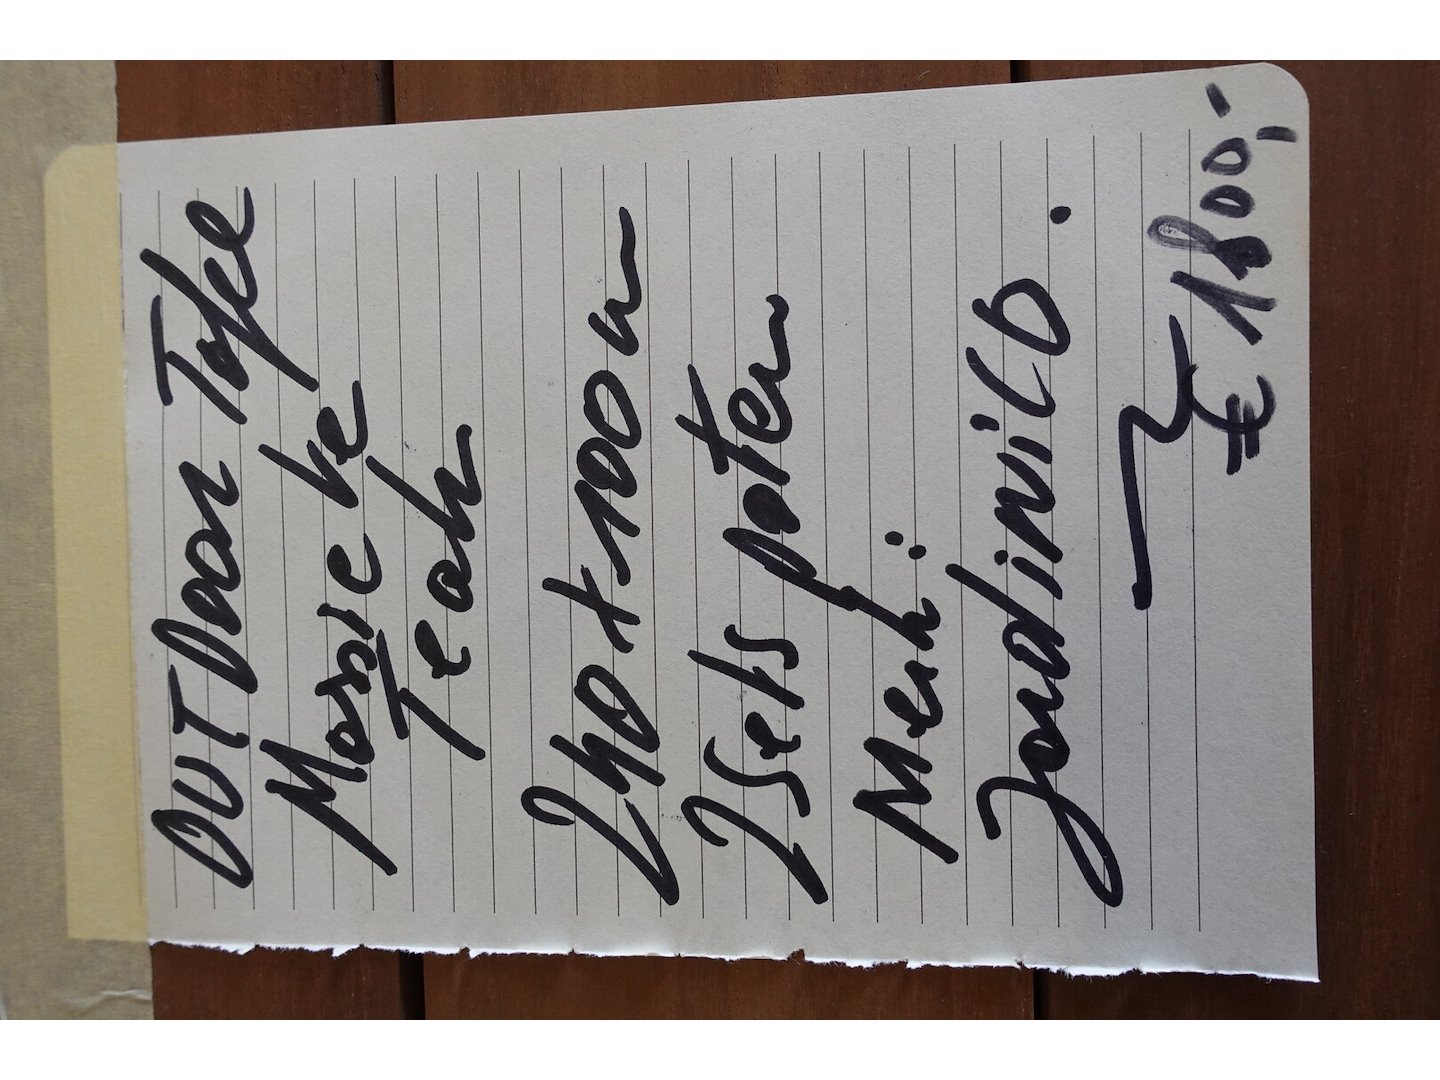 OUTDoor Tafel
Massieve
Teak
240+100cm
2 Sets poten
Merk:
Jardinico.
€ 1800,-